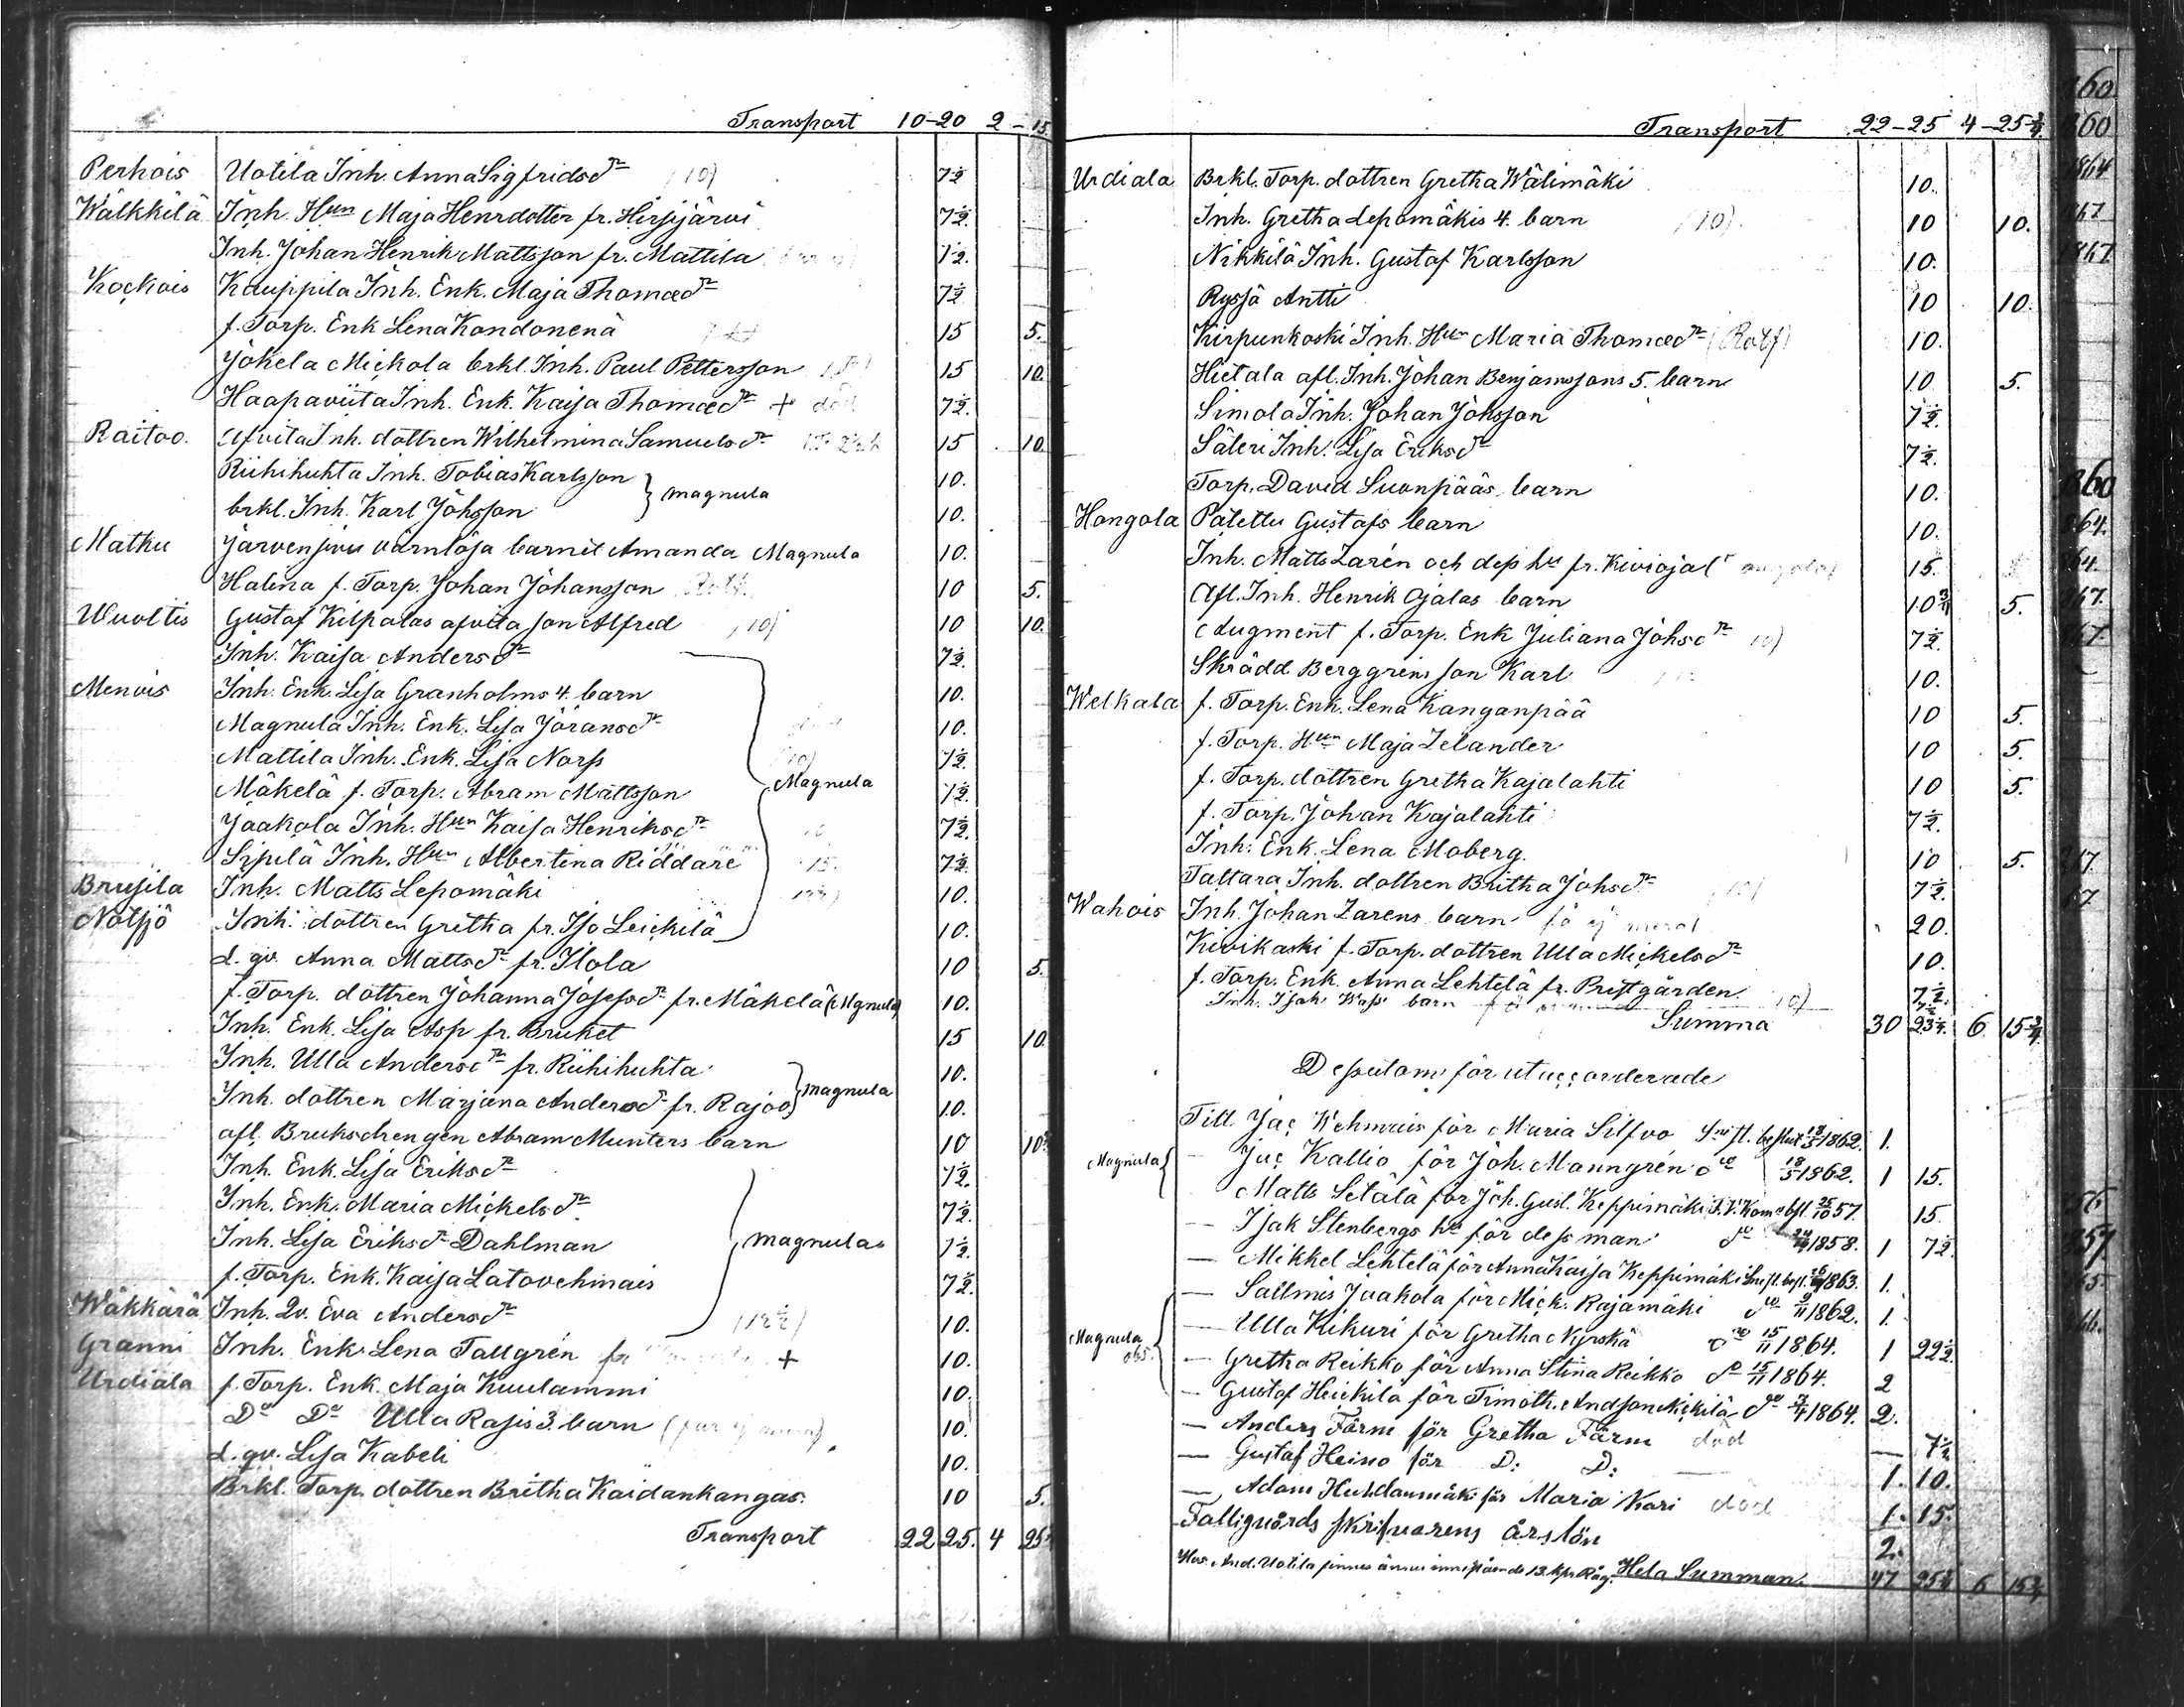 Transport 10-20 2-15
Perhois Uotila Inh. Anna Sigfridsdr (10) 7½
Wälkkilä Inh. Hun Maja Henrdotter fr. Hirsjärvi 7½
Inh. Johan Henrik Mattsson fr. Mattila 7½
Kockois Kauppila Inh. Enk. Maja Thomædr 7½
f. Torp. Enk Lena Kondonenä 15 5.
Jokela Mickola brkl. Inh. Paul Pettersson 15 10.
Haapaviita Inh. Enk. Kaisa Thomædr + död 7½
Raitoo. Afvita Inh. dottren Wilhelmina Samuelsdr 15 10.
Riihihuhta Inh. Tobias Karlsson 10.
brkl. Inh. Karl Johsson } Magnula 10.
Matku Järvensivu värnlösa barnet Amanda Magnula 10.
Halina f. Torp. Johan Johansson 10 5.
Wuoltis Gustaf Kilpalas afvita son Alfred (10) 10 10.
Inh. Kaisa Andersdr 7½
Menois Inh. Enk. Lisa Granholms 4. barn 10.
Magnula Inh. Enk. Lisa Jöransdr 10.
Mattila Inh. Enk. Lisa Norss (10) 7½
Mäkelä f. Torp. Abram Mattsson Magnula 7½
Jaakola Inh. Hun Kaisa Henriksdr 7½
Sipilä Inh. Hun Albertina Riddare 15. 7½
Brusila Inh. Matts Lepomäki 10.
Notsjö Inh. dottren Gretha fr. Iso Leickilä 10.
d. qv. Anna Mattsdr fr. Ilola 10 5.
f. Torp. dottren Johanna Josefsdr fr. Mäkelä (Magnula) 10.
Inh. Enk. Lisa Asp fr. Bruket 15 10.
Inh. Ulla Andersdr fr. Riihihuhta 10.
Inh. dottren Marjana Andersdr fr. Rajoo } Magnula 10.
afl. Bruksdrengen Abram Munters barn 10 10.
Inh. Enk. Lisa Eriksdr 7½
Inh. Enk. Maria Mickelsdr 7½
Inh. Lisa Eriksdr Dahlman Magnula 7½
f. Torp. Enk. Kaisa Latovehmais 7½
Wäkkärä Inh. Qv. Eva Andersdr (12½) 10.
Granni Inh. Enk. Lena Tallgrén + 10.
Urdiala f. Torp. Enk. Maja Kuulammi 10.
Do Do Ulla Rasis 3. barn 10.
d. qv. Lisa Kabeli 10.
Brkl. Torp. dottren Britha Kaidankangas. 10 5.
Transport 22 25. 4 25¾
Transport 22-25 4-25¾
Urdiala Brkl. Torp. dottren Gretha Wälimäki 10.
Inh. Gretha Lepomäkis 4. barn (10) 10 10.
Nikkilä Inh. Gustaf Karlsson 10.
Ryssä Antti 10 10.
Kirpunkoski Inh. Hun Maria Thomædr (Rolf) 10.
Hietala afl. Inh. Johan Benjamssons 5. barn 10 5.
Simola Inh. Johan Johsson 7½
Säteri Inh. Lisa Eriksdr 7½
Torp. David Suonpääs barn 10.
Hongola Palettu Gustafs barn 10.
Inh. Matts Zarén och dess hu fr. Kiviojal 15.
Afl. Inh. Henrik Ojalas barn 10¾ 5.
Augment f. Torp. Enk Juliana Johsdr 10) 7½
Skrädd Berggrens son Karl 10.
Welkala f. Torp. Enk. Lena Kanganpää 10 5.
f. Torp. Hun Maja Zelander 10 5.
f. Torp. dottren Gretha Kajalahti 10 5.
f. Torp. Johan Kajalahti 7½
Inh. Enk. Lena Moberg. 10 5.
Tattara Inh. dottren Britha Johsdr (10) 7½
Wahois Inh. Johan Zarens barn 20.
Kivikaski f. Torp. dottren Ulla Mickelsdr 10.
f. Torp. Enk. Anna Lehtelä fr. Prestgården. 7½
Inh. Isak barn 10) 7½
Summa 30 23¼ 6 15¾
Desutom för utaccorderade
Till Jac Wehmais för Maria Silfvo beslut 18/5 1862. 1.
Magnula — Jac Kallio för Joh. Manngrén do 18/5 1862. 1 15.
Matts Setälä för Joh. Gust. Keppimäki 57. 15
— Isak Stenbergs hu för dess man do 1858. 1 7½
— Mikkel Lehtelä för Anna Kaisa Keppimäki 1863. 1.
— Sallmis Jaakola för Mick. Rajamäki do 1862. 1.
Magnula — Ulla Kikuri för Gretha Nyrskä do 15/11 1864. 1 22½
— Gretha Reikko för Anna Stina Reikko do 15/11 1864. 2
— Gustaf Heickilä för Timoth. Andsson Nickilä do 1864. 2.
— Anders Färm för Gretha Färm död — 7½
— Gustaf Heino för D: D: 1. 10.
— Adam Huhdanmäki för Maria Kari död 1. 15.
Fattigvårds skrifvarens årslön 2.
Hos And. Uotila finnes ännu innestående 13. kpr Råg. Hela Summan. 47 25¼ 6 15¾